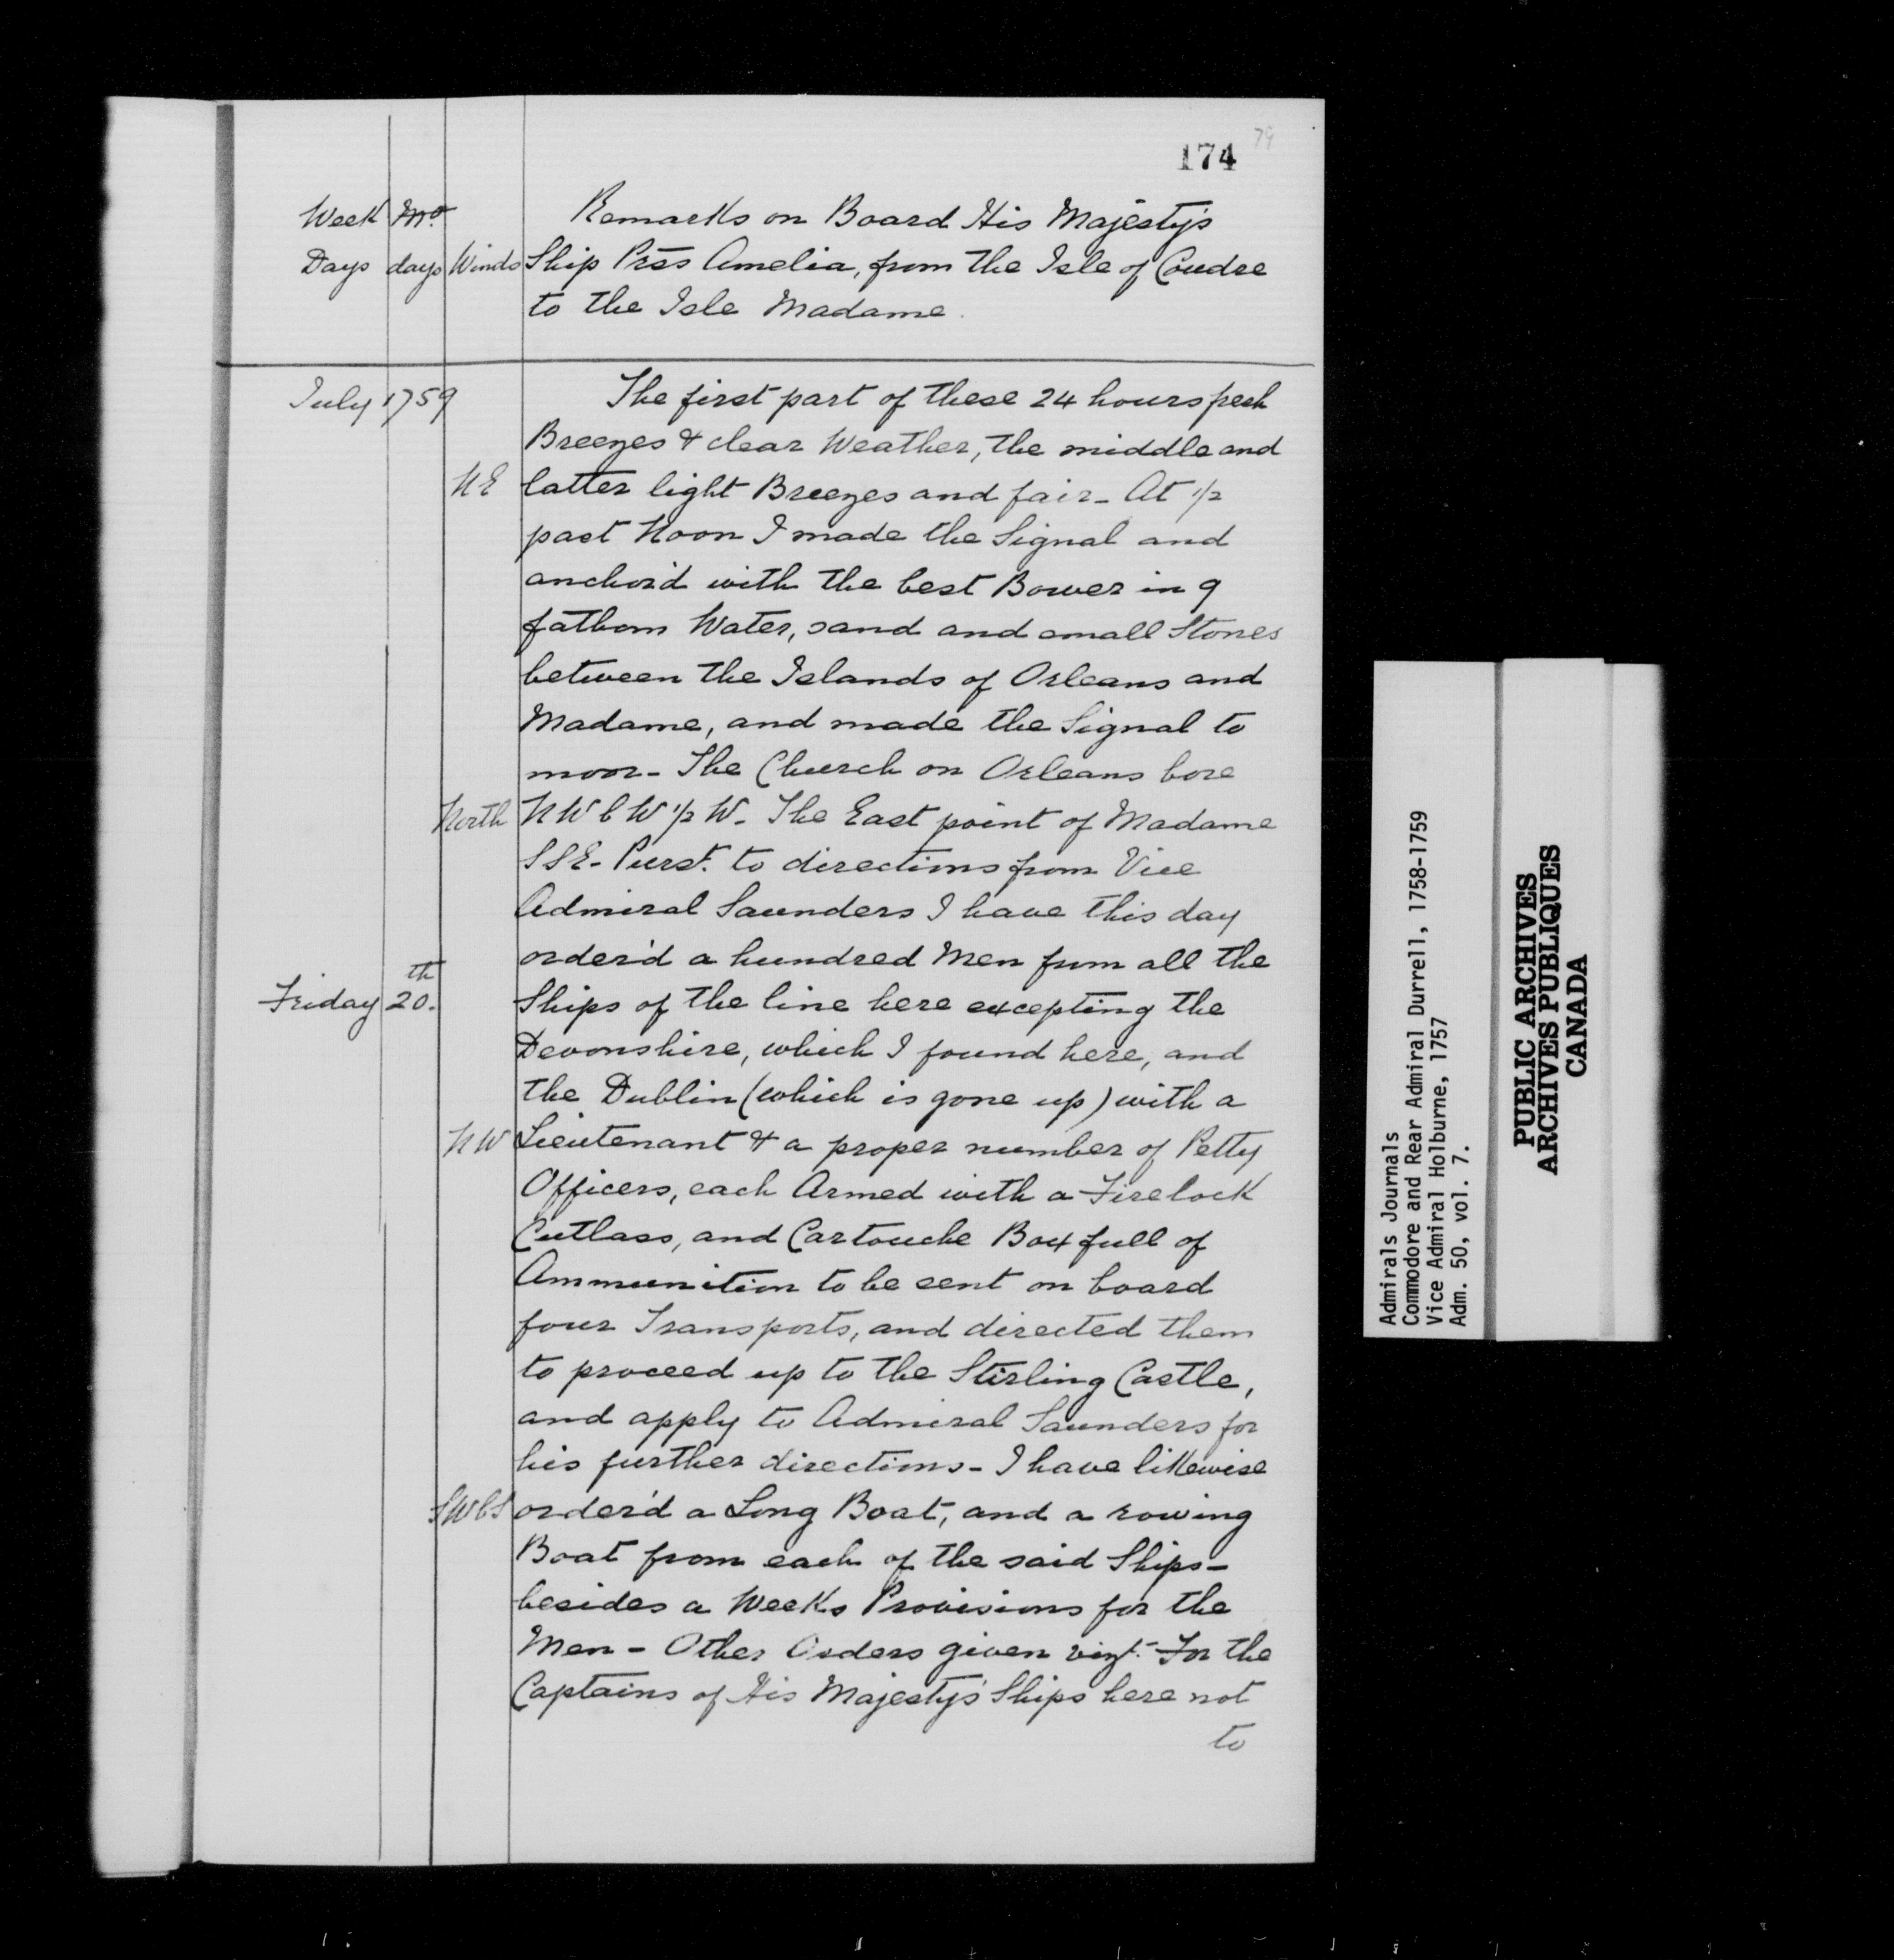 174 79
Week Mo. Remarks on Board His Majesty's
Days days Winds Ship Prss Amelia, from the Isle of Coudre
to the Isle Madame.
July 1759 The first part of these 24 hours fresh
Breezes & clear Weather, the middle and
NE latter light Breezes and fair - At 1/2
past Noon I made the Signal and
anchor'd with the best Bower in 9
fathom Water, sand and small Stones
between the Islands of Orleans and
Madame, and made the Signal to
moor - The Church on Orleans bore
North NWbW 1/2 W. The East point of Madame
SSE - Purst. to directions from Vice
Admiral Saunders I have this day
order'd a hundred Men from all the
Friday 20th. Ships of the line here excepting the
Devonshire, which I found here, and
the Dublin (which is gone up) with a
NW Lieutenant & a proper number of Petty
Officers, each Armed with a Firelock
Cutlass, and Cartouche Box full of
Ammunition to be sent on board
four Transports, and directed them
to proceed up to the Stirling Castle,
and apply to Admiral Saunders for
his further directions - I have likewise
SWbS order'd a Long Boat, and a rowing
Boat from each of the said Ships -
besides a Weeks Provisions for the
Men - Other Orders given vizt. - For the
Captains of His Majesty's Ships here not
to
Admirals Journals
Commodore and Rear Admiral Durrell, 1758-1759
Vice Admiral Holburne, 1757
Adm. 50, vol. 7.
PUBLIC ARCHIVES
ARCHIVES PUBLIQUES
CANADA